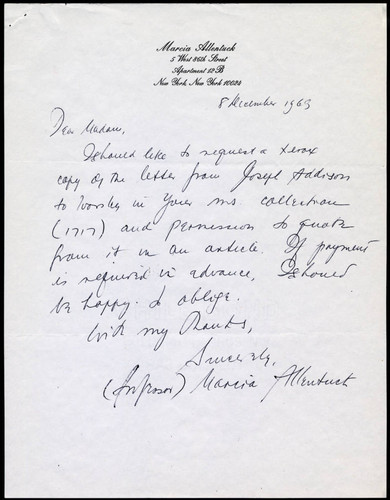 Marcia Allentuck
5 West 86th Street
Apartment 12 B
New York, New York 10024
8 December 1969
Dear Madam,
I should like to request a xerox
copy of the letter from Joseph Addison
to Worsley in your ms. collection
(1717) and permission to quote
from it in an article. If payment
is required in advance, I should
be happy to oblige.
With my thanks,
Sincerely,
(Professor) Marcia Allentuck